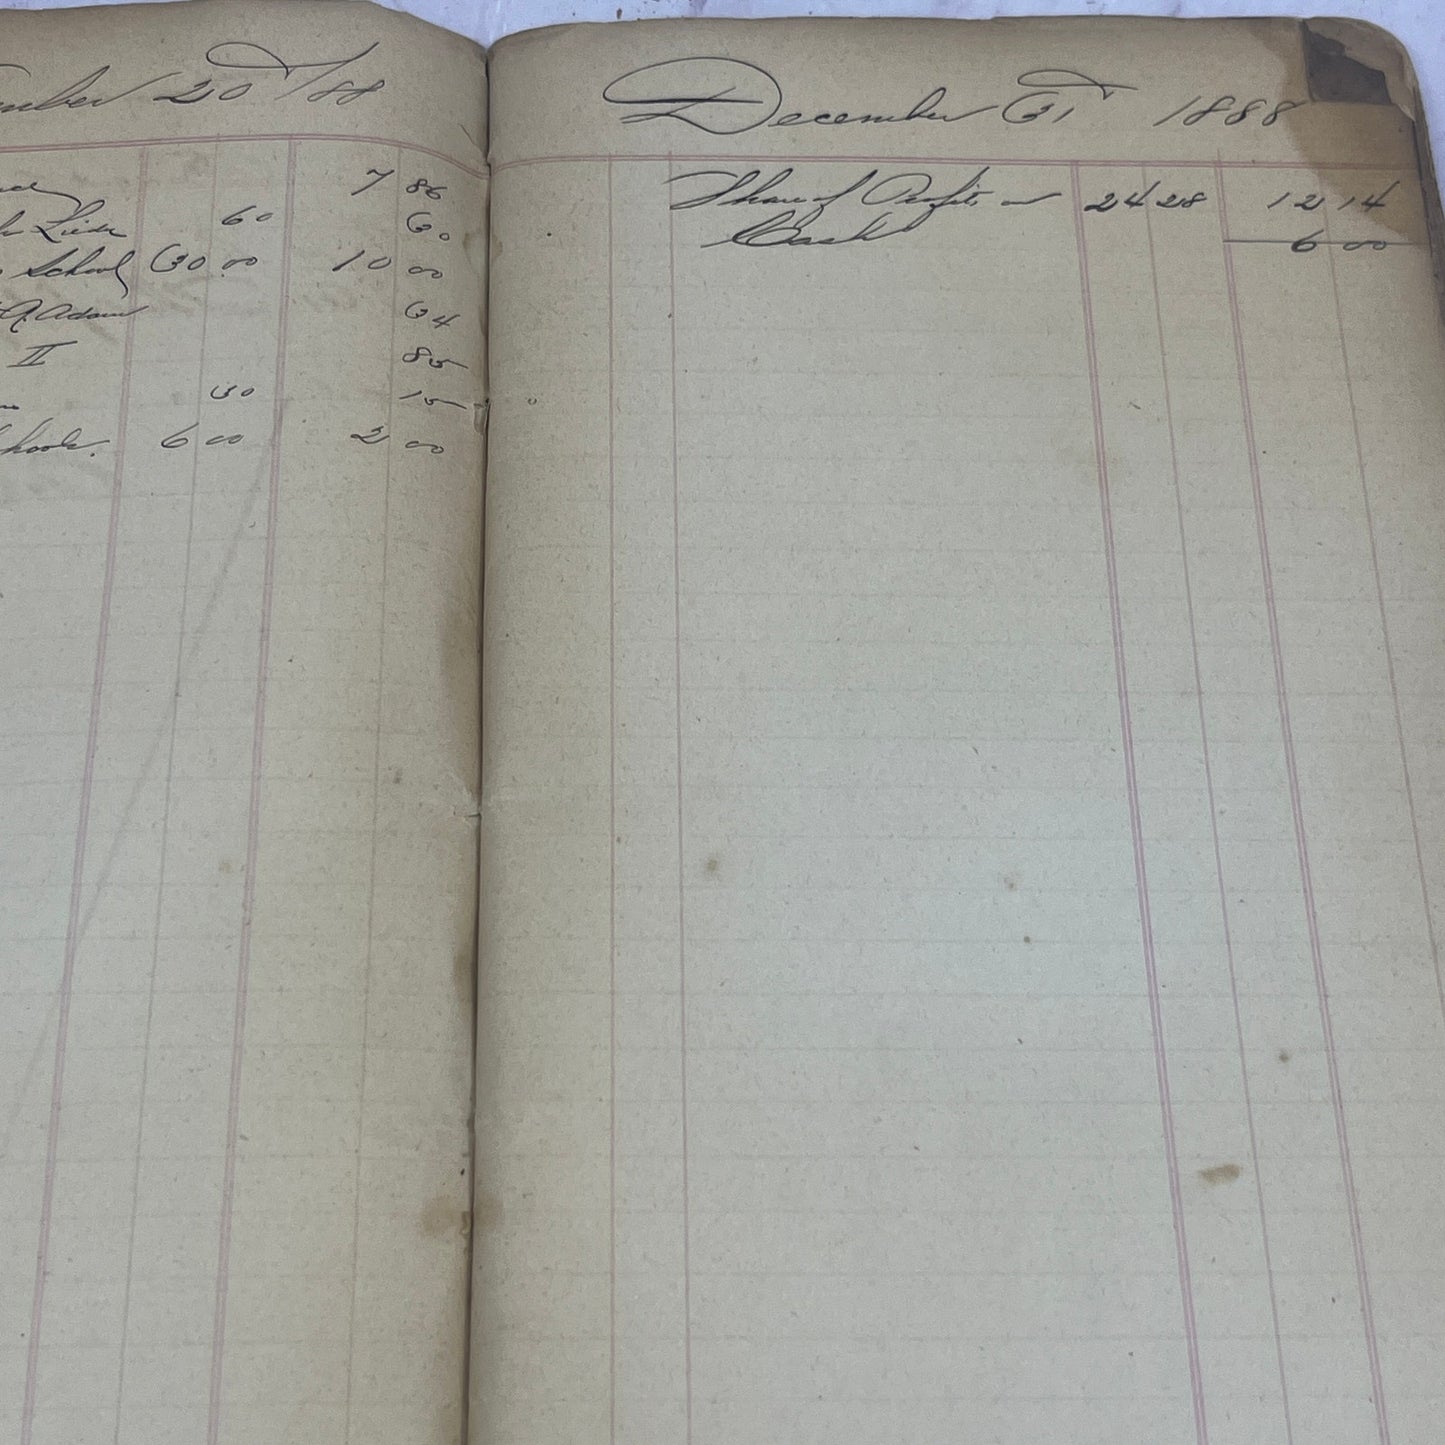 20 /88
7 86
60 60
School 30 00 10 00
A. Adam 34
II 85
30 15
6 00 2 00
December 31 1888
Share of Profits on 24 28 12 14
Cash 6 00